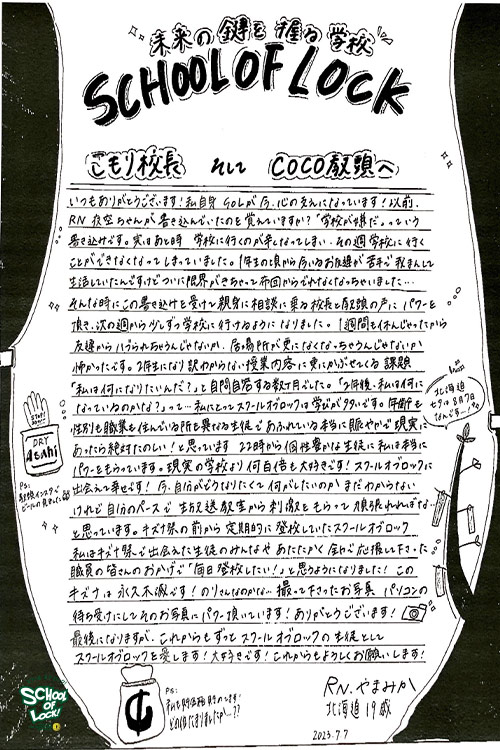 未来の鍵を握る学校
SCHOOL OF LOCK
こもり校長 そして COCO教頭へ
いつもありがとうございます!私自身 SOLが今、心の支えになっています!以前、
RN 夜空ちゃんが書き込んでいたのを覚えていますか?「学校が嫌だ」っていう
書き込みです。実はあの時 学校に行くのが辛くなってしまい、その週学校に行く
ことができなくなってしまっていました。1年生の頃から今いるお友達が苦手で我まんして
生活していたんですけどついに限界がきちゃって布団からでれなくなっちゃいました…
そんな時にこの書き込みを受けて親身に相談に乗る校長と教頭の声に パワーを
頂き、次の週から少しずつ学校に行けるように なりました。1週間も休んじゃったから
友達からハブられちゃうんじゃないか、居場所が更になくなっちゃうんじゃないか
怖かったです。2年生になり訳わからない授業内容に更にかぶせてくる課題
「私は何になりたいんだ?」と自問自答する数ヶ月でした。「2年後、私は何に
なっているのかな?」って…私にとってスクールオブロックは学びがタタです。年齢も
性別も職業も住んでいる所も異なる生徒であふれている本当に賑やかで現実に
あったら絶対たのしい!と思っています 22時から個性豊かな生徒に私は本当に
パワーをもらっています。現実の学校より何百倍も大好きです!スクールオブロックに
出会えて幸せです!今、自分がどうなりたくて何がしたいのか まだわからない
けれど自分のペースで 生放送教室から刺激をもらって頑張れればな…
と思っています。キズナ祭の前から 定期的に登校していたスクールオブロック
私はキズナ祭で出会えた生徒のみんなや あたたかく全力で応援して下さった
職員の皆さんのおかげで「毎日登校したい!」と思うようになりました!この
キズナは永久不滅です!のりさんなのかな…撮って下さったお写真 パソコンの
待ち受けにしてそのお写真にパワー頂いています!ありがとうございます!
最後になりますが、これからもずっとスクールオブロックの生徒として
スクールオブロックを愛します!大好きです!これからもよろしくお願いします!
RN.やまみか
北海道 19歳
2023.7.7
北海道
七夕は8月7日
なんです~!
STOP!
DRY
Asahi
PS:
PS:
SCHOOL
OF
LOCK!